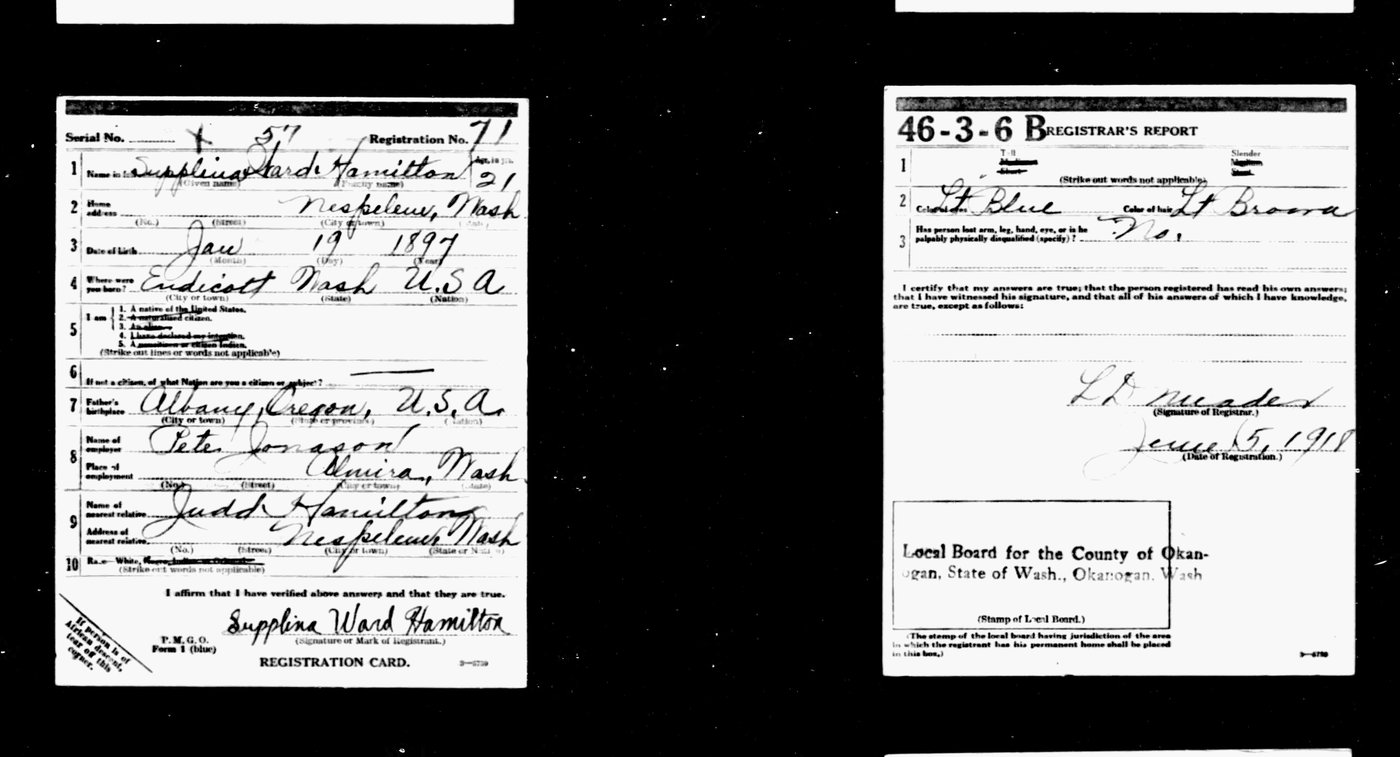 Serial No. 57 Registration No. 71
1 Name in full Supplina Ward Hamilton Age, in yrs. 21
(Given name) (Family name)
2 Home address Nespelem, Wash
(No.) (Street) (City or town) (State)
3 Date of birth Jan 19 1897
(Month) (Day) (Year)
4 Where were you born? Endicott Wash U.S A
(City or town) (State) (Nation)
5 I am
1. A native of the United States.
2. A naturalized citizen.
3. An alien.
4. I have declared my intention.
5. A noncitizen or citizen Indian.
(Strike out lines or words not applicable)
6 If not a citizen, of what Nation are you a citizen or subject?
7 Father's birthplace Albany, Oregon, U.S.A.
(City or town) (State or province) (Nation)
8 Name of employer Pete Jonason
Place of employment Almira, Wash
(No.) (Street) (City or town) (State)
9 Name of nearest relative Judd Hamilton
Address of nearest relative Nespelem Wash
(No.) (Street) (City or town) (State or Nation)
10 Race—White,
(Strike out words not applicable)
I affirm that I have verified above answers and that they are true.
Supplina Ward Hamilton
(Signature or Mark of Registrant.)
P. M. G. O.
Form 1 (blue)
REGISTRATION CARD.
3—6759
If person is of
African descent,
tear off this
corner.
46-3-6 B REGISTRAR'S REPORT
1 Tall Medium Short Slender Medium Stout
(Strike out words not applicable)
2 Color of eyes Lt Blue Color of hair Lt Brown
3 Has person lost arm, leg, hand, eye, or is he
palpably physically disqualified (specify)? No.
I certify that my answers are true; that the person registered has read his own answers;
that I have witnessed his signature, and that all of his answers of which I have knowledge,
are true, except as follows:
L D Meader
(Signature of Registrar.)
June 5, 1918
(Date of Registration.)
Local Board for the County of Okan-
ogan, State of Wash., Okanogan, Wash
(Stamp of Local Board.)
(The stamp of the local board having jurisdiction of the area
in which the registrant has his permanent home shall be placed
in this box.)
3—6759